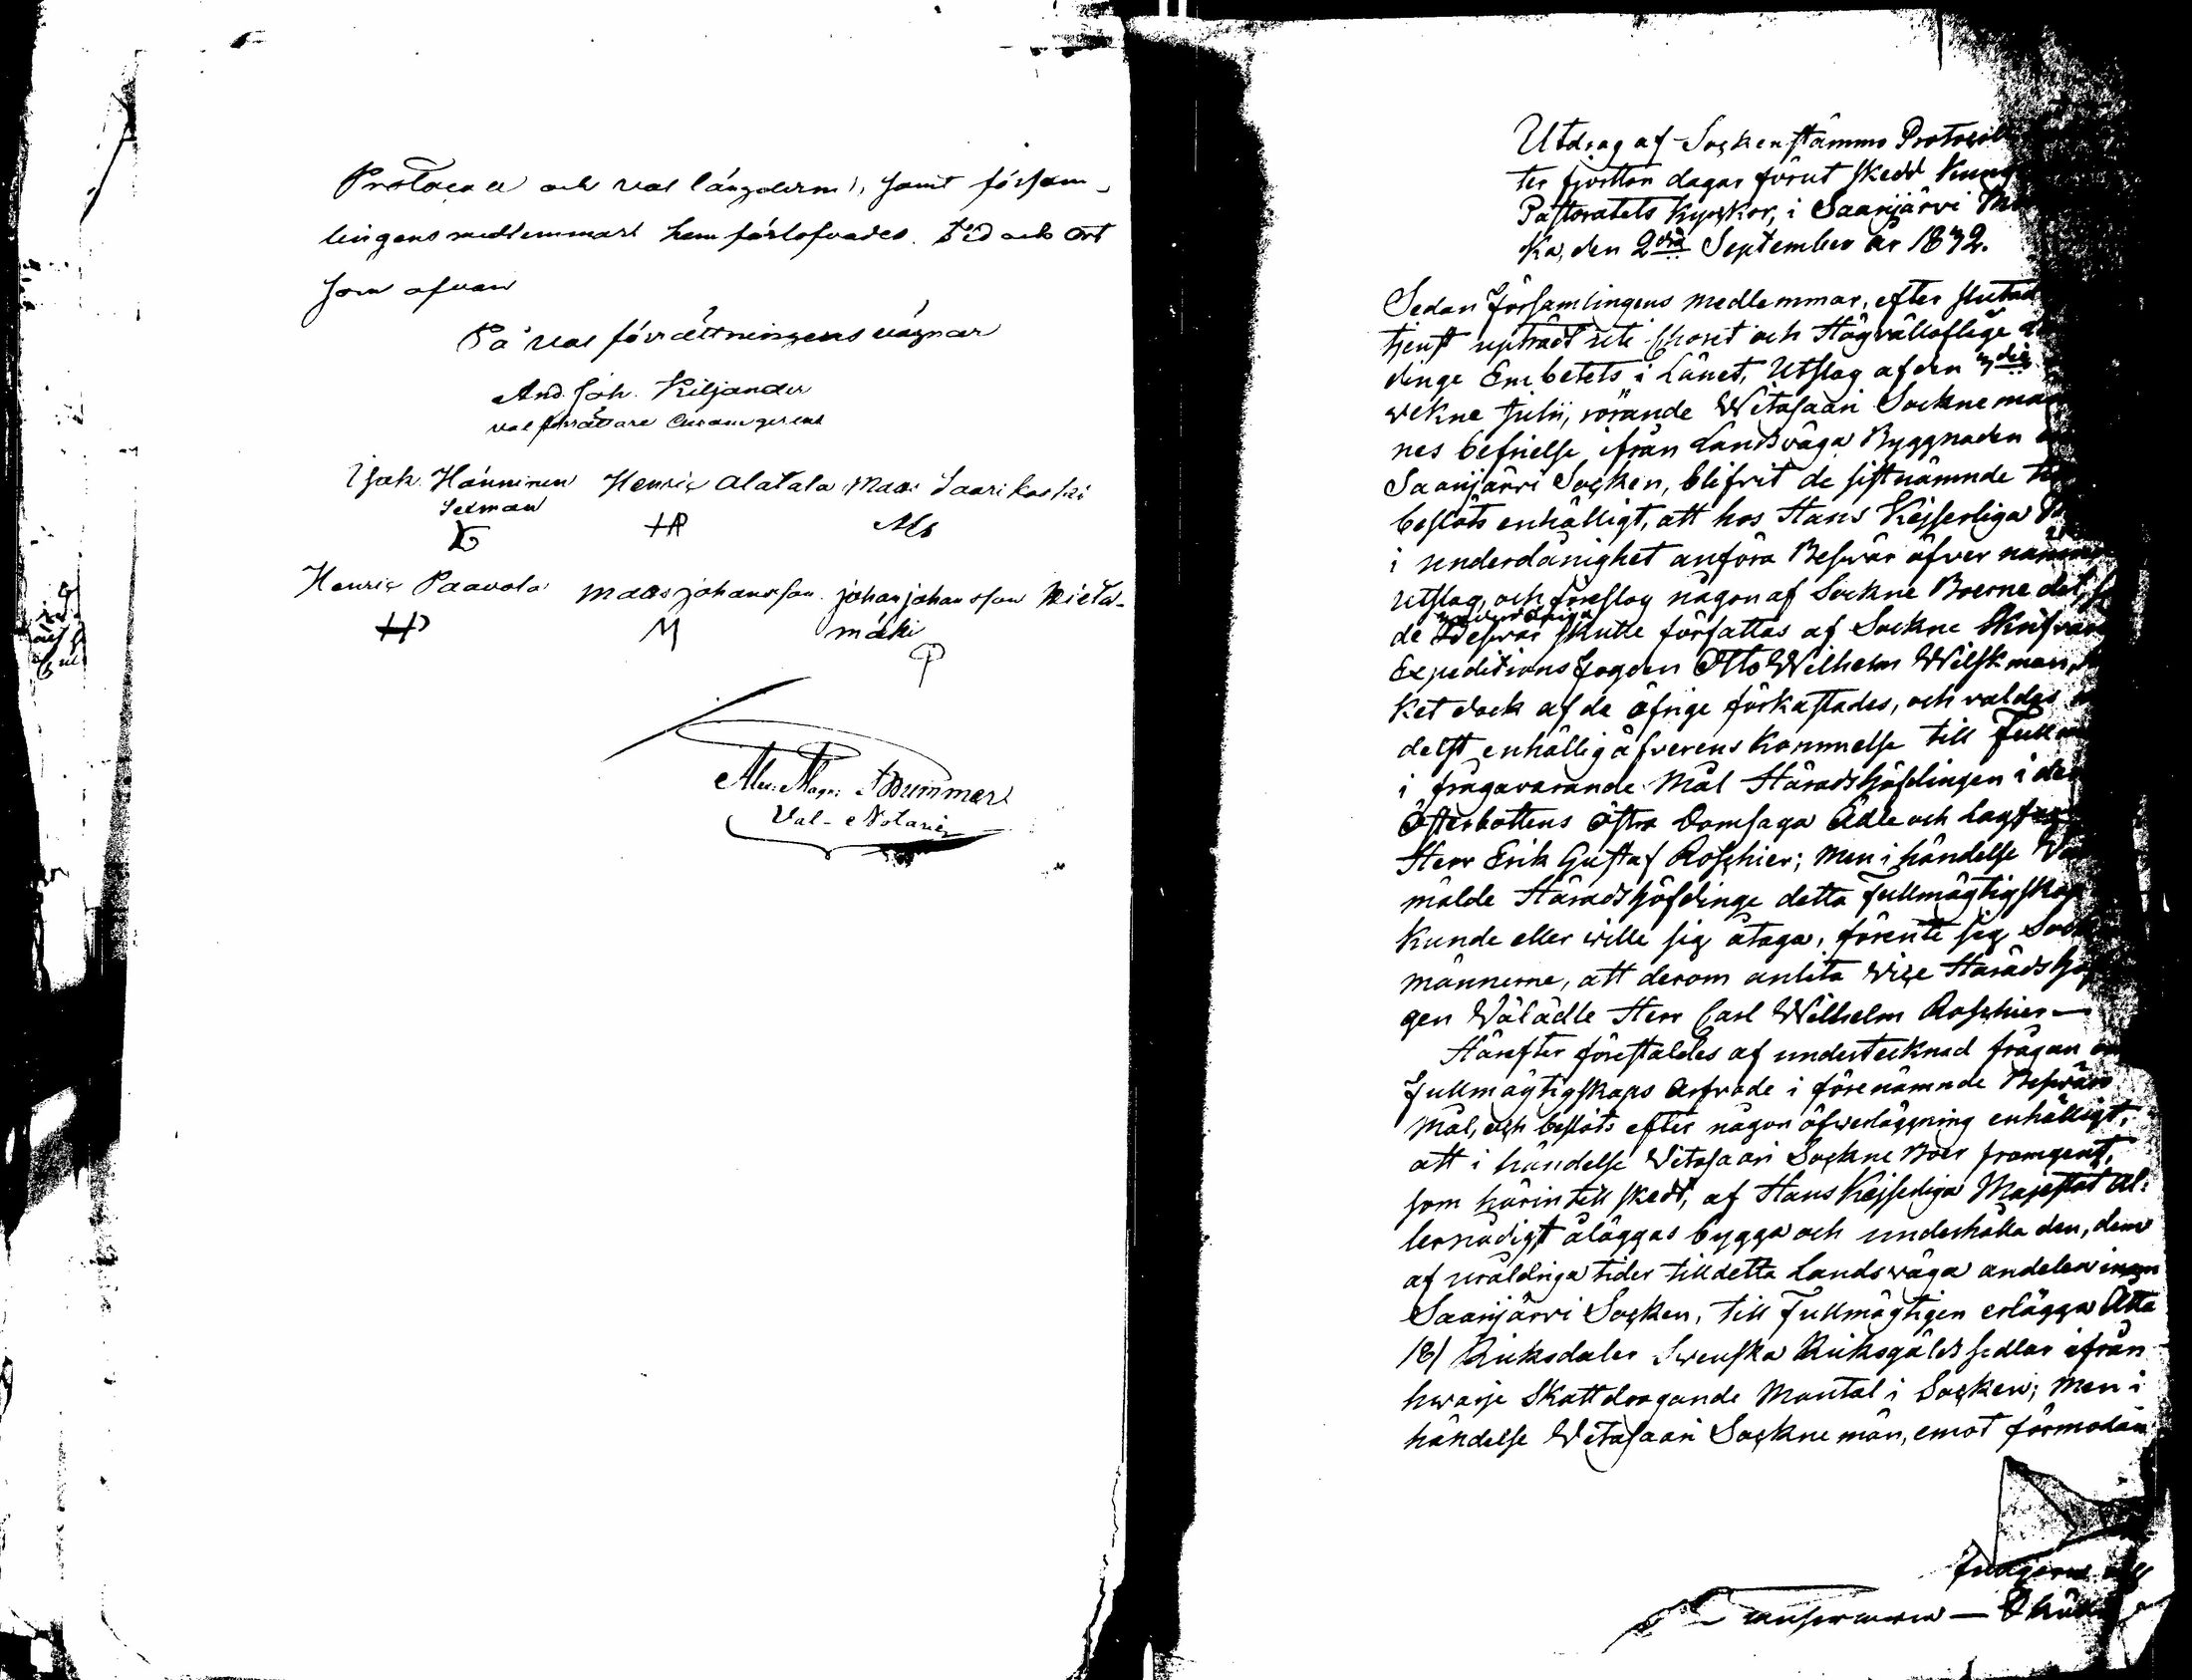 Protocoll och val längderne, samt försam-
lingens medlemmar hem förlofvades. Tid och Ort
som ofvan
På val förrättningens vägnar
And. Joh. Kiljander
val förrättare
Isak Hänninen Henric Alatalo Mats Saarikoski
HP Ms
Henric Paavola Mats Johansson Johan Johansson Mieto-
mäki
HP M
Alex. Magn: Brummer
Val-Notarie
Utdrag af Sockenstämmo Protocoll
ter fjorton dagar förut skedd Kung
Pastoratets Kyrkor, i Saarijärvi
ka, den 2dra September år 1832.
Sedan Församlingens medlemmar, efter slutad
tjenst uptrædt och Högvälloflige
dinge Embetets i Länet, Utslag af den
wekne Julii, rörande Witasaari Sockne
nes befrielse ifrån Landsväga Byggnaden
Saarijärvi Socken, blifvit de sistnämnde
beslöts enhälligt, att hos Hans Kejserliga
i underdånighet anföra Besvär öfver
Utslag, och föreslog någon af Sockne Boerne det,
underdåniga
de Besvär skulle författas af Sockne Skrifvar
Expeditions Fogden Otto Wilhelm Wilskman,
ket dock af de öfrige förkastades, och valdes
delst enhällig öfverenskommelse till Full
i frågavarande Mål Häradshöfdingen i
Österbottens östra Domsaga Ädle och Lag
Herr Erik Gustaf Roschier; men i händelse
mälde Häradshöfdinge detta Fullmägtigskap
kunde eller wille sig åtaga, förente sig Sock
männerne, att derom anlita Vice Häradshöf
gen Välädle Herr Carl Wilhelm Roschier —
Härefter föreställdes af undertecknad frågan om
Fullmägtigskaps Arfvode i förenämnde Besvärs
Mål, och beslöts efter någon öfwerläggning enhälligt,
att i händelse Witasaari Sockne Boer framgent,
som härintill skedt, af Hans Kejserliga Majestät al-
lernådigst åläggas bygga och underhålla den, dem
af uråldriga tider till detta Landsväga andelen inom
Saarijärvi Socken, till Fullmägtigen erlägga Åtta
/8/ Riksdaler Svenska Riksgälds sedlar ifrån
hwarje Skattdragande Mantal i Socken; men i
händelse Witasaari Sockne män, emot förmodan